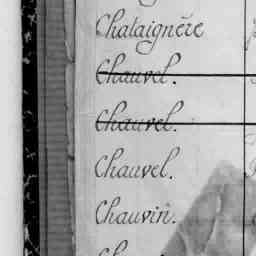 Chataignère
Chauvel.
Chauvel.
Chauvel.
Chauvin.